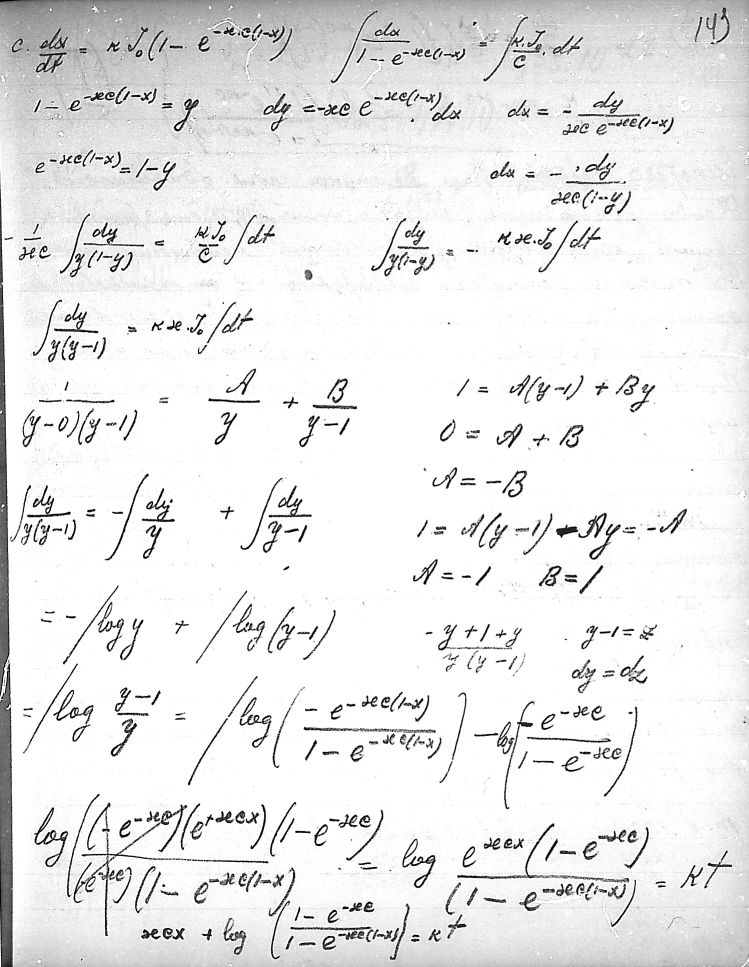 143
c. dx/dt = κ J₀ (1 − e^{−ϰc(1−x)})    ∫ dx/(1 − e^{−ϰc(1−x)}) = ∫ κ.J₀/c . dt
1 − e^{−ϰc(1−x)} = y    dy = −ϰc e^{−ϰc(1−x)} . dx    dx = − dy/(ϰc e^{−ϰc(1−x)})
e^{−ϰc(1−x)} = 1−y    dx = − dy/(ϰc(1−y))
− 1/ϰc ∫ dy/(y(1−y)) = κJ₀/c ∫ dt    ∫ dy/(y(1−y)) = − κϰ.J₀ ∫ dt
∫ dy/(y(y−1)) = κϰ.J₀ ∫ dt
1/((y−0)(y−1)) = A/y + B/(y−1)    1 = A(y−1) + By
0 = A + B
A = −B
∫ dy/(y(y−1)) = − ∫ dy/y + ∫ dy/(y−1)    1 = A(y−1) − Ay = −A
A = −1    B = 1
= − log y + log (y−1)    (−y+1+y)/(y(y−1))    y−1 = z
dy = dz
= log (y−1)/y = log ( −e^{−ϰc(1−x)} / (1 − e^{−ϰc(1−x)}) ) − log ( −e^{−ϰc} / (1 − e^{−ϰc}) )
log ( (−e^{−ϰc})(e^{+ϰcx})(1−e^{−ϰc}) / (−e^{−ϰc})(1 − e^{−ϰc(1−x)}) ) = log e^{ϰcx}(1−e^{−ϰc}) / (1−e^{−ϰc(1−x)}) = κt
ϰcx + log ( (1−e^{−ϰc}) / (1−e^{−ϰc(1−x)}) ) = κt